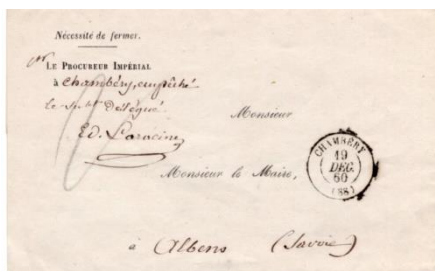 Nécessité de fermer.
Pr LE PROCUREUR IMPÉRIAL
à Chambéry, empêché
le Délégué
Ed. Laracine
Monsieur
Monsieur le Maire,
à Albens (Savoie)
CHAMBÉRY
19
DEC.
60
(88)